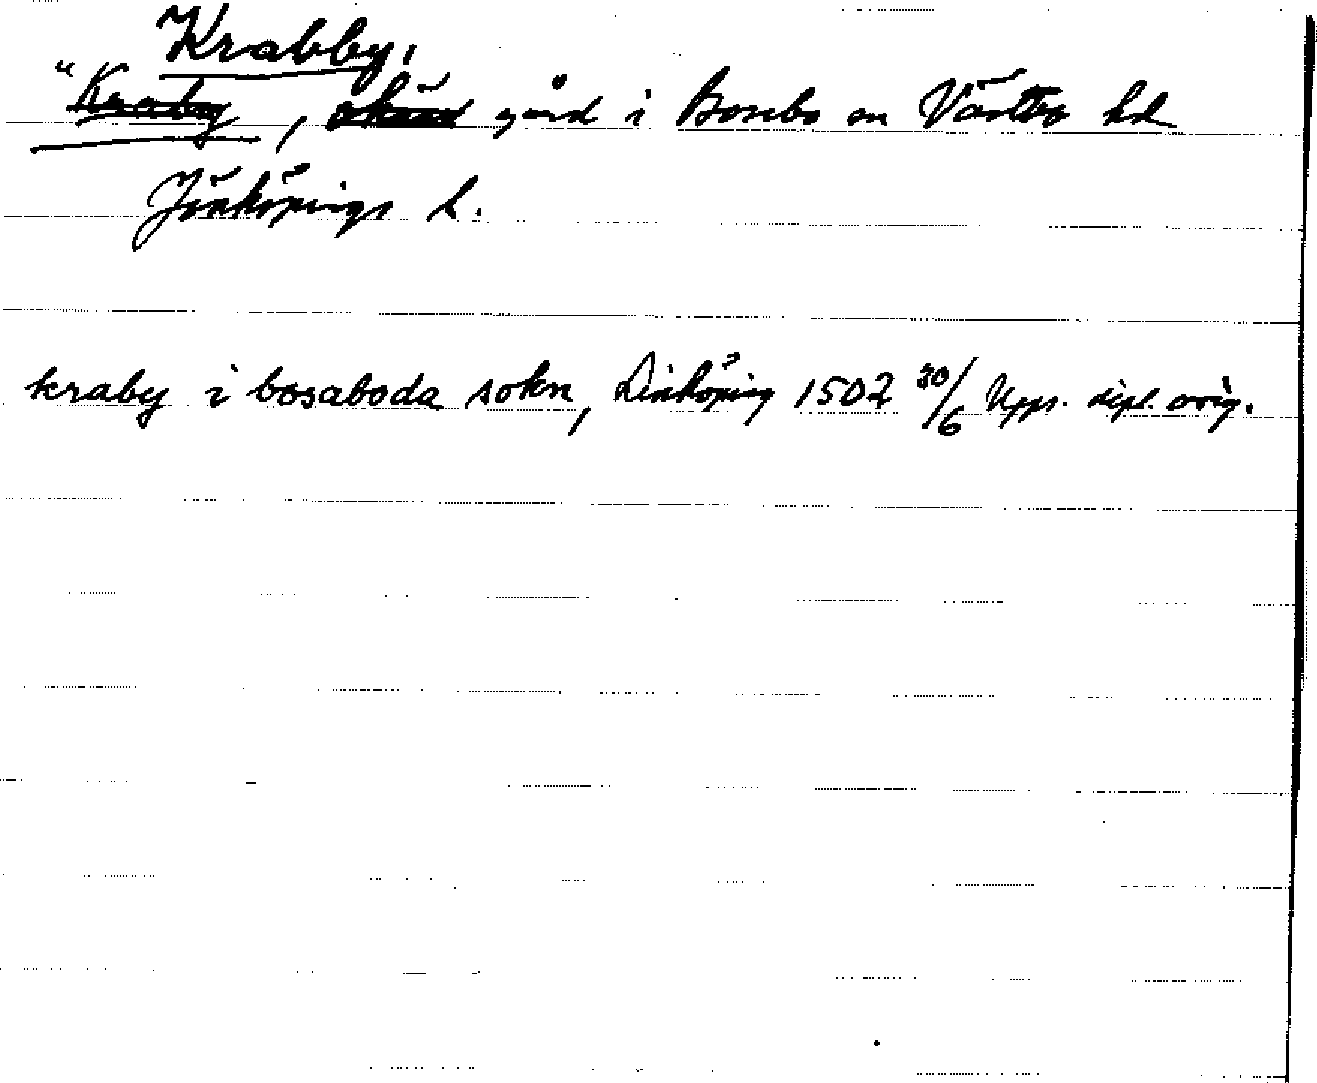 Krabby,
"Kraby, okänd gård i Bosebo sn Västbo hd
Jönköpings l.
kraby i bosaboda sokn, Linköping 1507 30/6 Upps. dipl. orig.